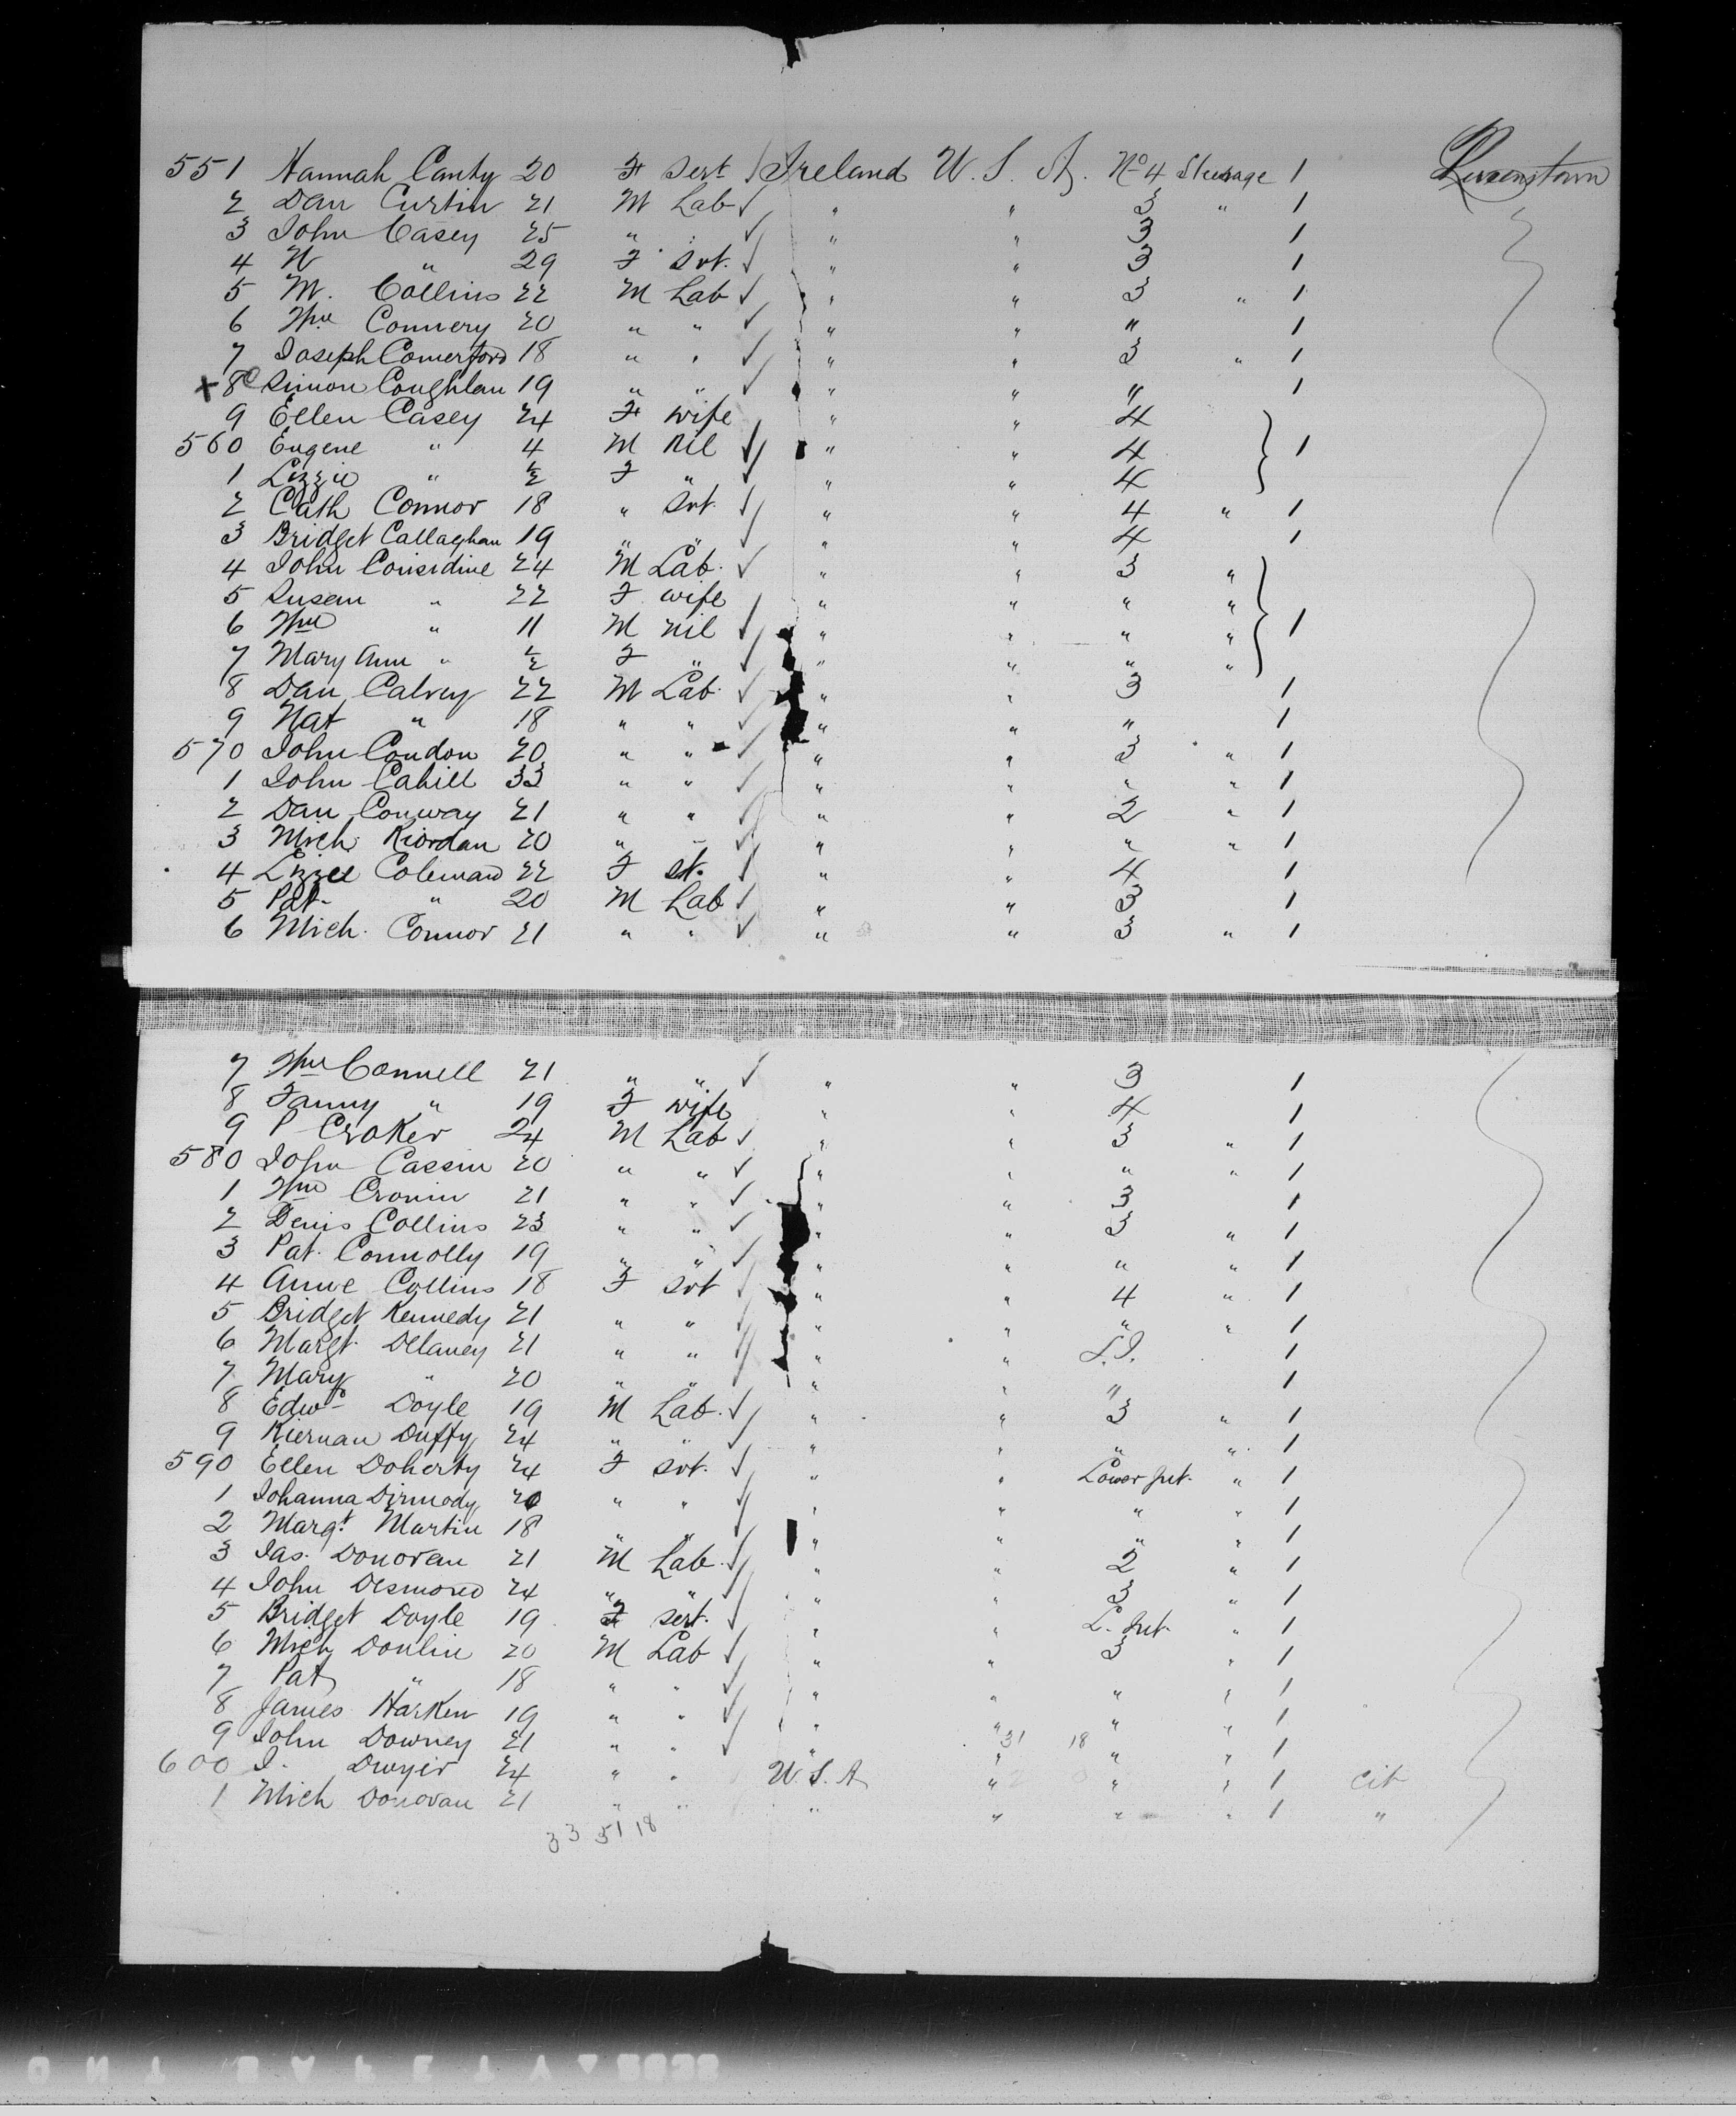 551 Hannah Canty 20 F Sert Ireland U. S. A. No 4 Steerage 1 Queenstown
2 Dan Curtin 21 M Lab " " 3 " 1
3 John Casey 25 " " " " 3 1
4 N " 29 F Svt. " " 3 1
5 M. Collins 22 M Lab " " 3 " 1
6 Wm Connery 20 " " " " " 1
7 Joseph Comerford 18 " " " " 3 " 1
+ 8 Simon Coughlan 19 " " " " " 1
9 Ellen Casey 24 F wife " " 4
560 Eugene " 4 M nil " " 4 1
1 Lizzie " ½ F " " " 4
2 Cath Connor 18 " Svt. " " 4 " 1
3 Bridget Callaghan 19 " " " " 4 1
4 John Considine 24 M Lab. " " 3 "
5 Susan " 22 F wife " " " "
6 Wm " 11 M nil " " " " 1
7 Mary Ann " ½ F " " " " "
8 Dan Calvey 22 M Lab. " " 3 1
9 Nat " 18 " " " " " 1
570 John Condon 20 " " " " 3 " 1
1 John Cahill 33 " " " " " " 1
2 Dan Conway 21 " " " " 2 " 1
3 Mich. Riordan 20 " " " " " " 1
4 Lizzie Coleman 22 F st. " " 4 1
5 Pat. " 20 M Lab " " 3 1
6 Mich. Connor 21 " " " " 3 " 1
7 Wm Connell 21 " " " " 3 1
8 Fanny " 19 F wife " " 4 1
9 P Croker 24 M Lab " " 3 " 1
580 John Cassin 20 " " " " " " 1
1 Wm Cronin 21 " " " " 3 1
2 Denis Collins 23 " " " " 3 " 1
3 Pat. Connolly 19 " " " " " " 1
4 Anne Collins 18 F Svt " " 4 " 1
5 Bridget Kennedy 21 " " " " " " 1
6 Margt. Delaney 21 " " " " 1
7 Mary " 20 " " " " " 1
8 Edwd Doyle 19 M Lab. " " 3 " 1
9 Kiernan Duffy 24 " " " " " " 1
590 Ellen Doherty 24 F Svt. " " Lower " 1
1 Johanna Dirmody 20 " " " " " " 1
2 Margt Martin 18 " " " " " " 1
3 Jas. Donovan 21 M Lab. " " 2 " 1
4 John Desmond 24 " " " " 3 " 1
5 Bridget Doyle 19 F sert. " " L. " 1
6 Mich Donlin 20 M Lab " " 3 " 1
7 Pat " 18 " " " " " " 1
8 James Harken 19 " " " " " " 1
9 John Downey 21 " " " " 31 18 " " 1
600 J. Dwyer 24 " " U. S. A " " " 1 cit
1 Mich Donovan 21 " " " " " " 1 "
33 51 18